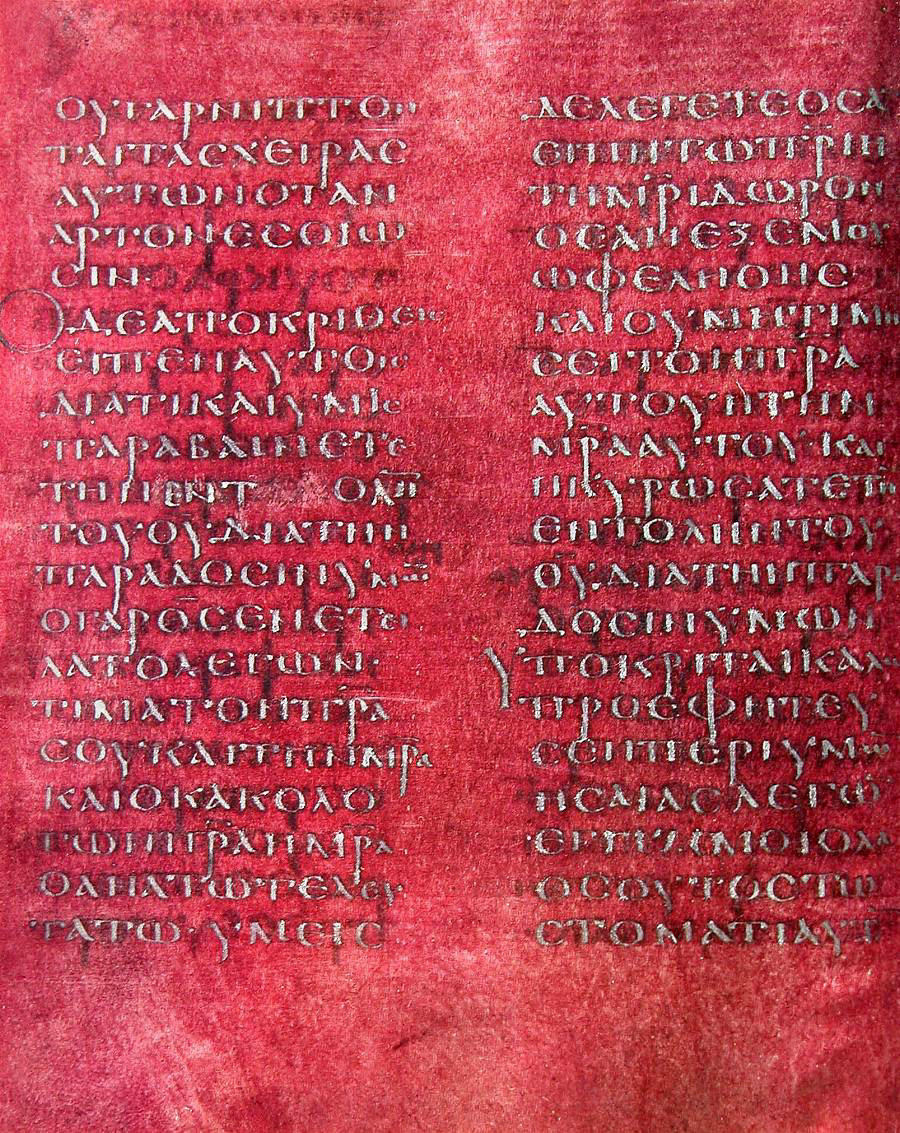 ΟΥΓΑΡΝΙΠΤΟΝ
ΤΑΙΤΑϹΧΕΙΡΑϹ
ΑΥΤΩΝΟΤΑΝ
ΑΡΤΟΝΕϹΘΙΩ
ϹΙΝ
ΟΔΕΑΠΟΚΡΙΘΕΙϹ
ΕΙΠΕΝΑΥΤΟΙϹ
ΔΙΑΤΙΚΑΙΥΜΙϹ
ΠΑΡΑΒΑΙΝΕΤΕ
ΤΗΝΕΝΤΟΛΗ̅
ΤΟΥΘ̅Υ̅ΔΙΑΤΗΝ
ΠΑΡΑΔΟϹΙΝΥΜΩ̅
ΟΓΑΡΘ̅Ϲ̅ΕΝΕΤΕΙ
ΛΑΤΟΛΕΓΩΝ·
ΤΙΜΑΤΟΝΠ̅Ρ̅Α̅
ϹΟΥΚΑΙΤΗΝΜ̅Ρ̅Α̅
ΚΑΙΟΚΑΚΟΛΟ
ΓΩΝΠ̅Ρ̅Α̅ΗΜ̅Ρ̅Α̅
ΘΑΝΑΤΩΤΕΛΕΥ
ΤΑΤΩ·ΥΜΕΙϹ
ΔΕΛΕΓΕΤΕΟϹΑ̅
ΕΙΠΗΤΩΠ̅Ρ̅Ι̅Η
ΤΗΜ̅Ρ̅Ι̅ΔΩΡΟΝ
ΟΕΑΝΕΞΕΜΟΥ
ΩΦΕΛΗΘΗϹ
ΚΑΙΟΥΜΗΤΙΜΗ
ϹΕΙΤΟΝΠ̅Ρ̅Α̅
ΑΥΤΟΥΗΤΗΝ
Μ̅Ρ̅Α̅ΑΥΤΟΥΚΑΙ
ΗΚΥΡΩϹΑΤΕΤΗ̅
ΕΝΤΟΛΗΝΤΟΥ
Θ̅Υ̅ΔΙΑΤΗΝΠΑΡΑ
ΔΟϹΙΝΥΜΩΝ
ΥΠΟΚΡΙΤΑΙΚΑΛΩϹ
ΠΡΟΕΦΗΤΕΥ
ϹΕΝΠΕΡΙΥΜΩ̅
ΗϹΑΙΑϹΛΕΓΩ̅
ΕΓΓΙΖΙΜΟΙΟΛΑ
ΟϹΟΥΤΟϹΤΩ
ϹΤΟΜΑΤΙΑΥΤ